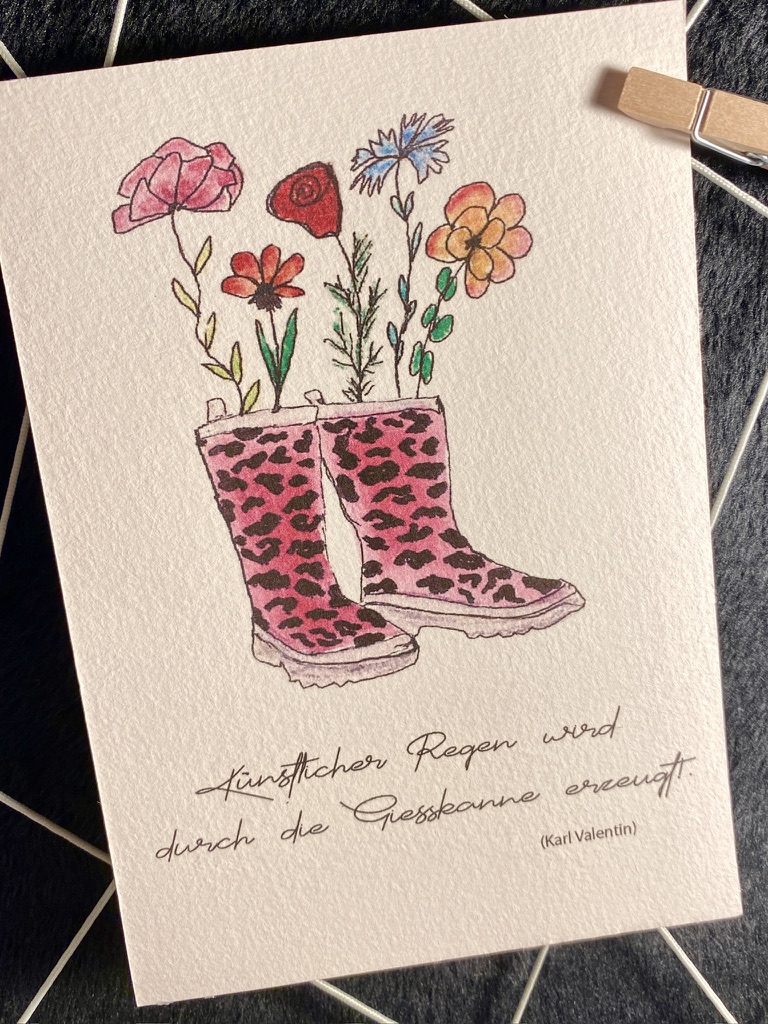 Künstlicher Regen wird
durch die Giesskanne erzeugt.
(Karl Valentin)